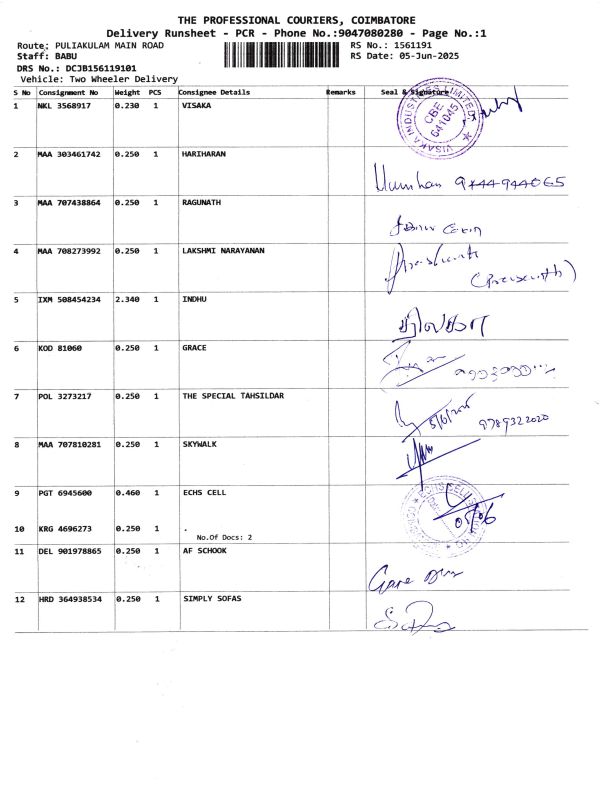 THE PROFESSIONAL COURIERS, COIMBATORE
Delivery Runsheet - PCR - Phone No.:9047080280 - Page No.:1
Route: PULIAKULAM MAIN ROAD RS No.: 1561191
Staff: BABU RS Date: 05-Jun-2025
DRS No.: DCJB156119101
Vehicle: Two Wheeler Delivery
S No Consignment No Weight PCS Consignee Details Remarks Seal & Signature
1 NKL 3568917 0.230 1 VISAKA
VISAKA INDUSTRIES LIMITED CBE 641045
2 MAA 303461742 0.250 1 HARIHARAN
3 MAA 707438864 0.250 1 RAGUNATH
4 MAA 708273992 0.250 1 LAKSHMI NARAYANAN
5 IXM 508454234 2.340 1 INDHU
6 KOD 81060 0.250 1 GRACE
7 POL 3273217 0.250 1 THE SPECIAL TAHSILDAR
9789322020
8 MAA 707810281 0.250 1 SKYWALK
9 PGT 6945600 0.460 1 ECHS CELL
05/06
10 KRG 4696273 0.250 1 .
No.Of Docs: 2
11 DEL 901978865 0.250 1 AF SCHOOK
12 HRD 364938534 0.250 1 SIMPLY SOFAS